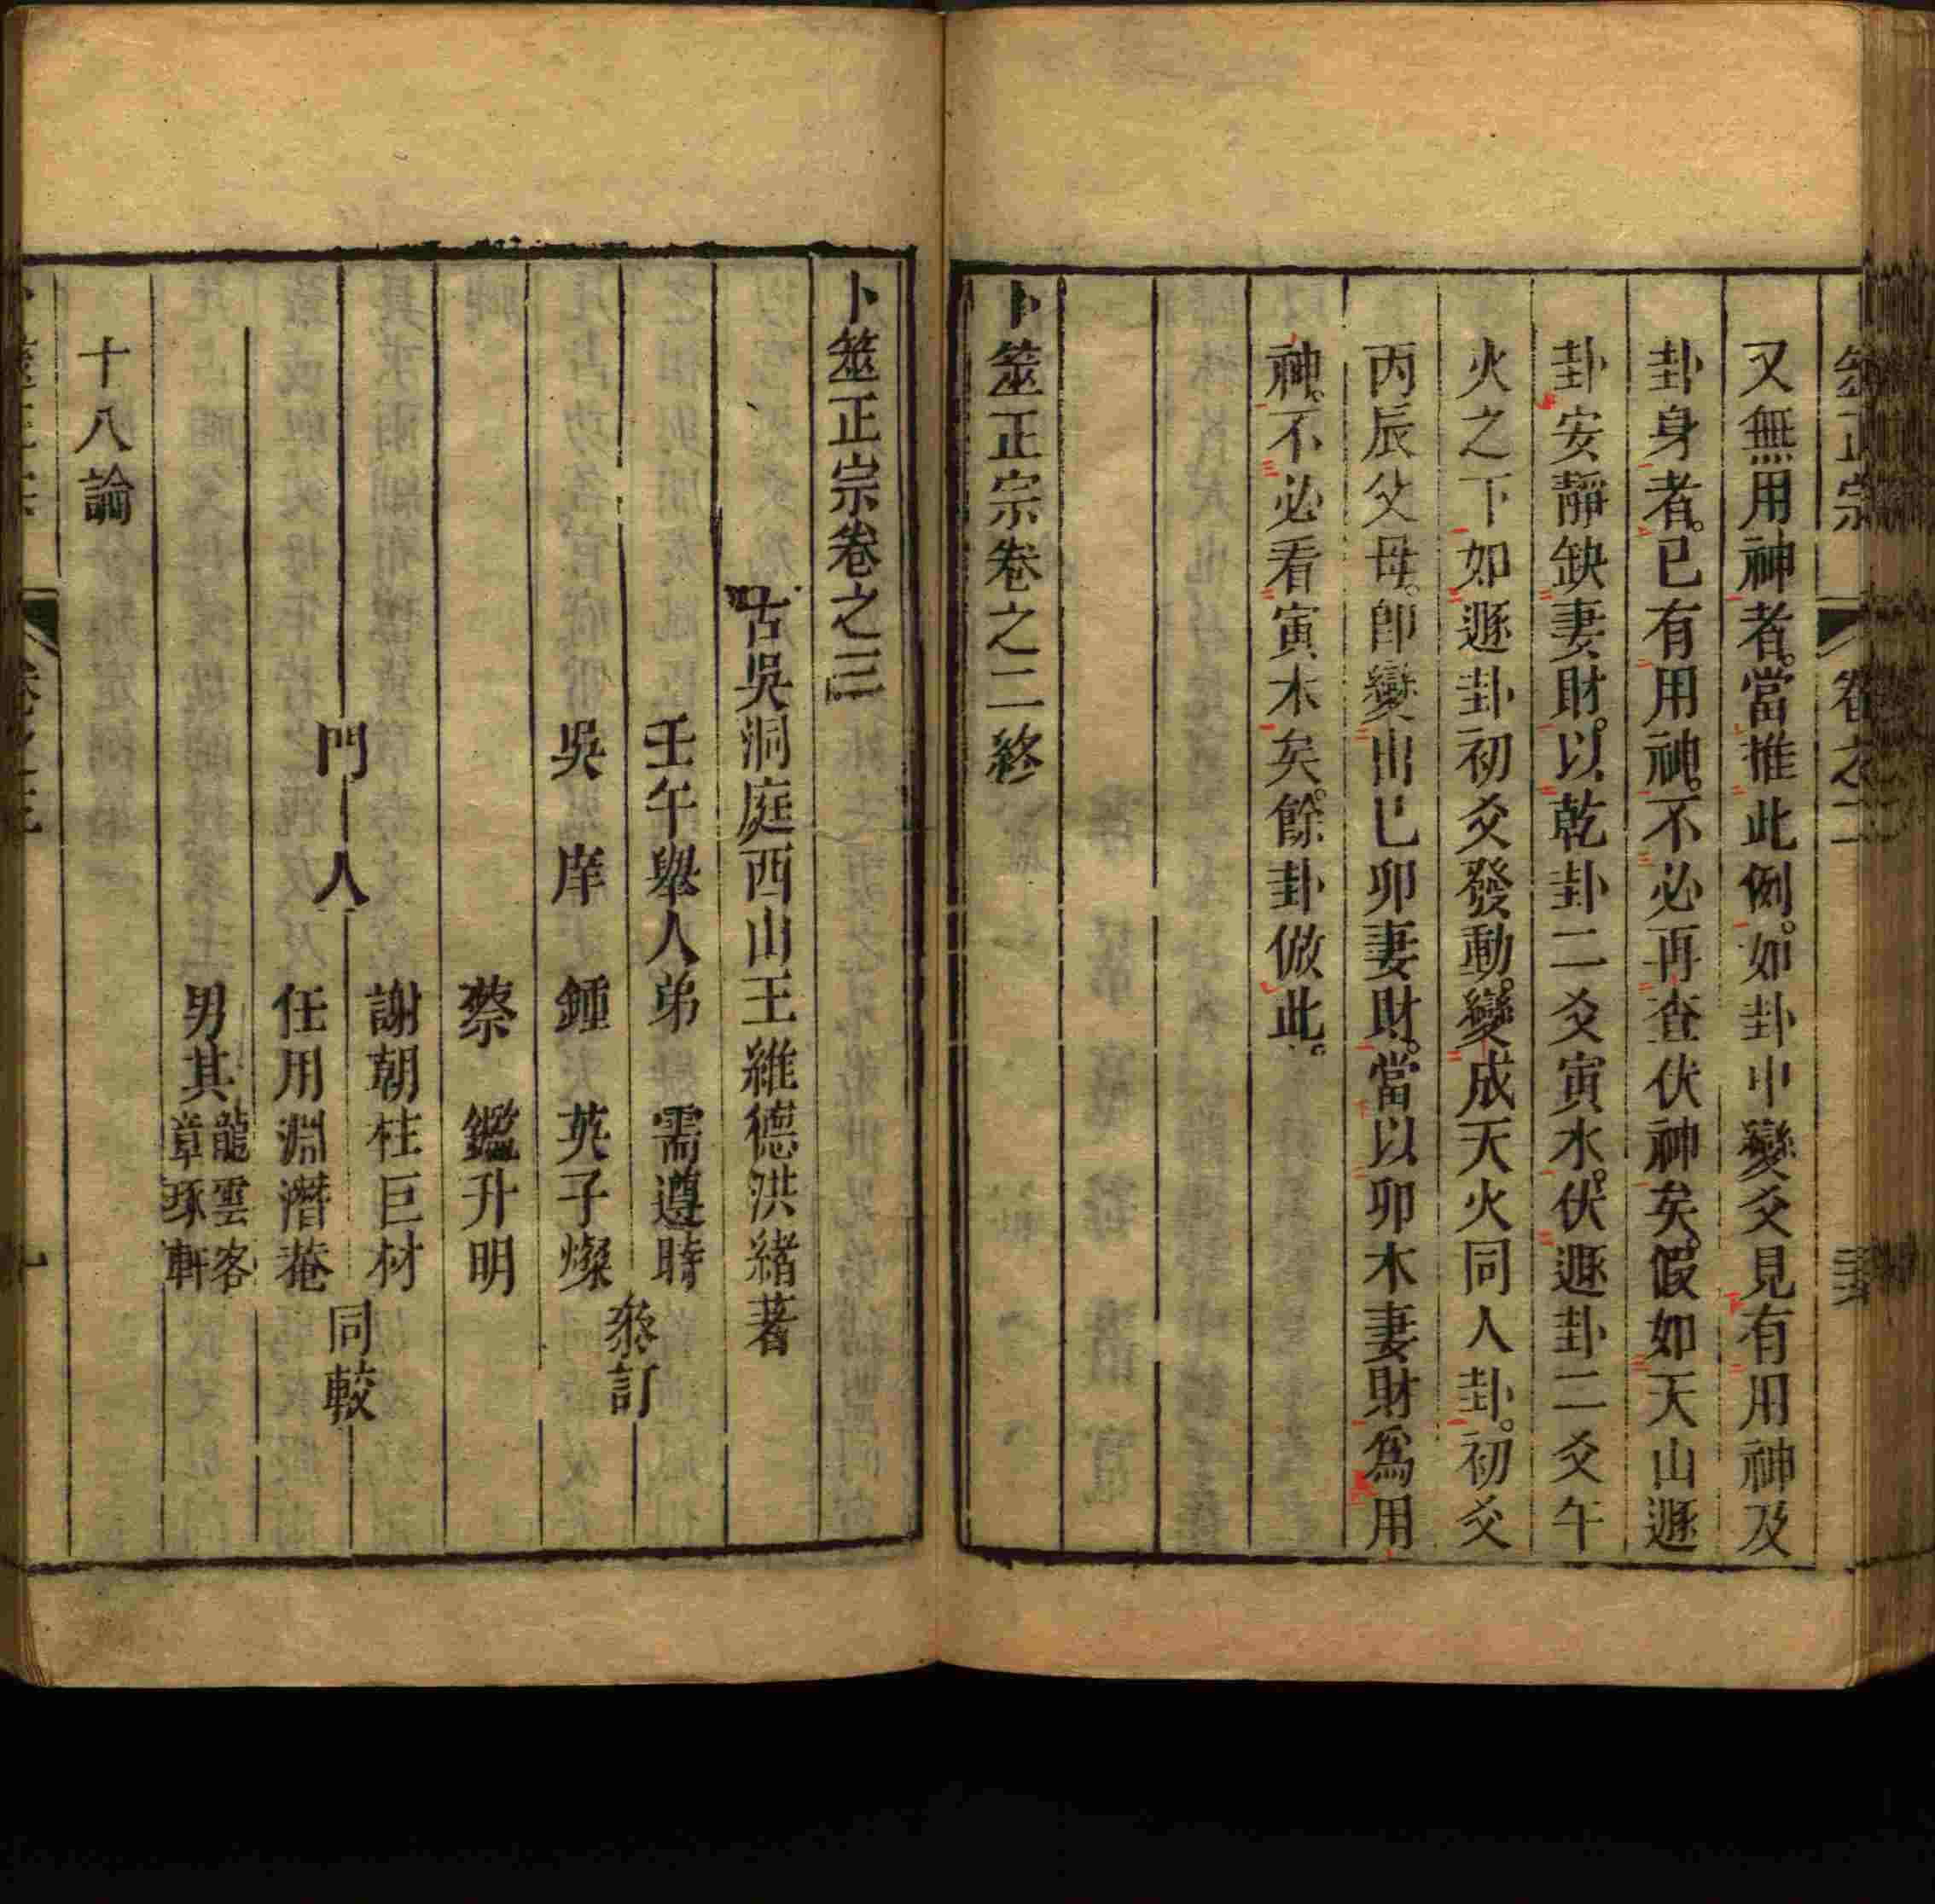 筮正宗 卷之二
又無用神者。當推此例。如卦中變爻見有用神及
卦身者。已有用神。不必再查伏神矣。假如天山遯
卦安靜缺妻財。以乾卦二爻寅木。伏遯卦二爻午
火之下如遯卦初爻發動。變成天火同人卦。初爻
丙辰父母。卽變出已卯妻財。當以卯木妻財爲用
神。不必看寅木矣。餘卦倣此。
卜筮正宗卷之二終
卜筮正宗卷之三
古吳洞庭西山王維德洪緒著
壬午舉人弟 需遵時
吳 庠 鍾 英子燦
叅訂
蔡 鑑升明
謝朝柱巨材
門人
任用淵潛菴
同較
男其龍雲客
章琢軒
十八論